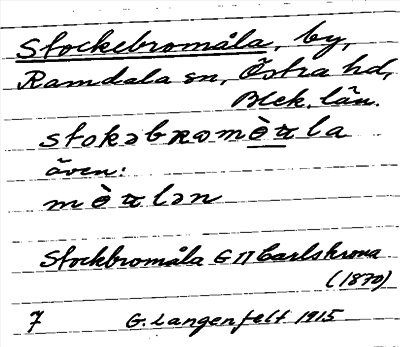 Stockebromåla, by,
Ramdala sn, Östra hd,
Blek. län.
stokəbromè̱ṯla
även:
mètlən
Stockbromåla G 17 Carlskrona
(1870)
7 G. Langenfelt 1915